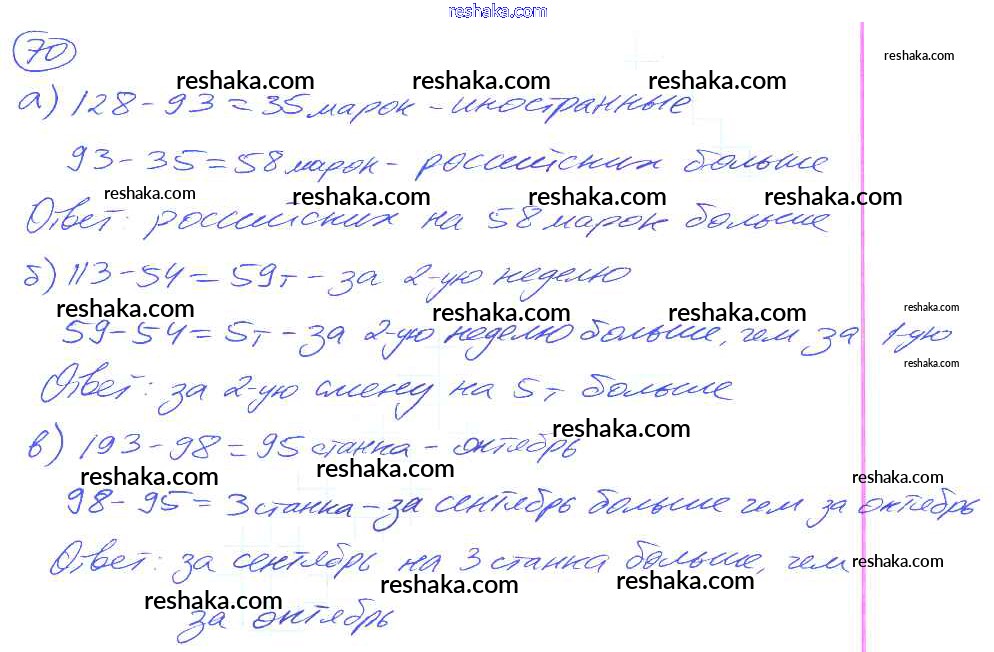 reshaka.com
70
reshaka.com
reshaka.com reshaka.com reshaka.com
а) 128 - 93 = 35 марок - иностранные
93 - 35 = 58 марок - российских больше
reshaka.com reshaka.com reshaka.com reshaka.com
Ответ: российских на 58 марок больше
б) 113 - 54 = 59т - за 2-ую неделю
reshaka.com reshaka.com reshaka.com reshaka.com
59 - 54 = 5т - за 2-ую неделю больше, чем за 1-ую
reshaka.com
Ответ: за 2-ую смену на 5т больше
reshaka.com
в) 193 - 98 = 95 станка - октябрь
reshaka.com reshaka.com reshaka.com
98 - 95 = 3 станка - за сентябрь больше чем за октябрь
Ответ: за сентябрь на 3 станка больше, чем
reshaka.com reshaka.com reshaka.com
reshaka.com
за октябрь